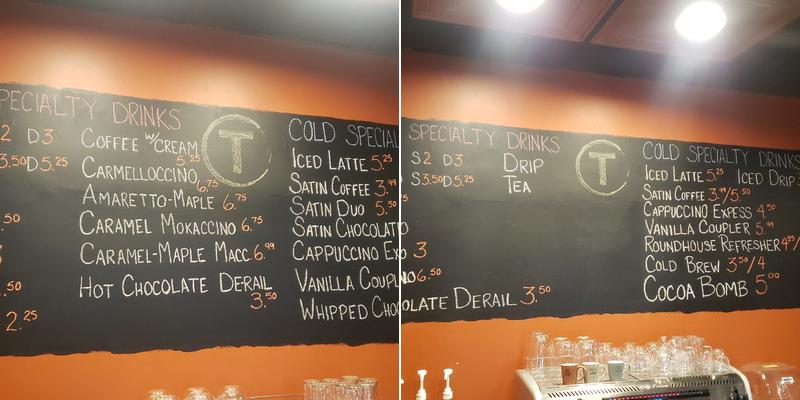 PECIALTY DRINKS
2 D3
3.50 D5.25
.50
.50
2.25
COFFEE w/CREAM 5.25
CARMELLOCCINO 6.75
AMARETTO-MAPLE 6.75
CARAMEL MOKACCINO 6.75
CARAMEL-MAPLE MACC. 6.99
HOT CHOCOLATE DERAIL 3.50
T
COLD SPECIAL
ICED LATTE 5.25
SATIN COFFEE 3.99
SATIN DUO 5.50
SATIN CHOCOLAT
CAPPUCCINO EXP
VANILLA COUPL
WHIPPED CHO
SPECIALTY DRINKS
S2 D3
S3.50 D5.25
DRIP
TEA
3
NO 6.50
OLATE DERAIL 3.50
T
COLD SPECIALTY DRINKS
ICED LATTE 5.25 ICED DRIP
SATIN COFFEE 3.99/5.50
CAPPUCCINO EXPESS 4.50
VANILLA COUPLER 5.99
ROUNDHOUSE REFRESHER 4.25/
COLD BREW 3.50/4
COCOA BOMB 5.00